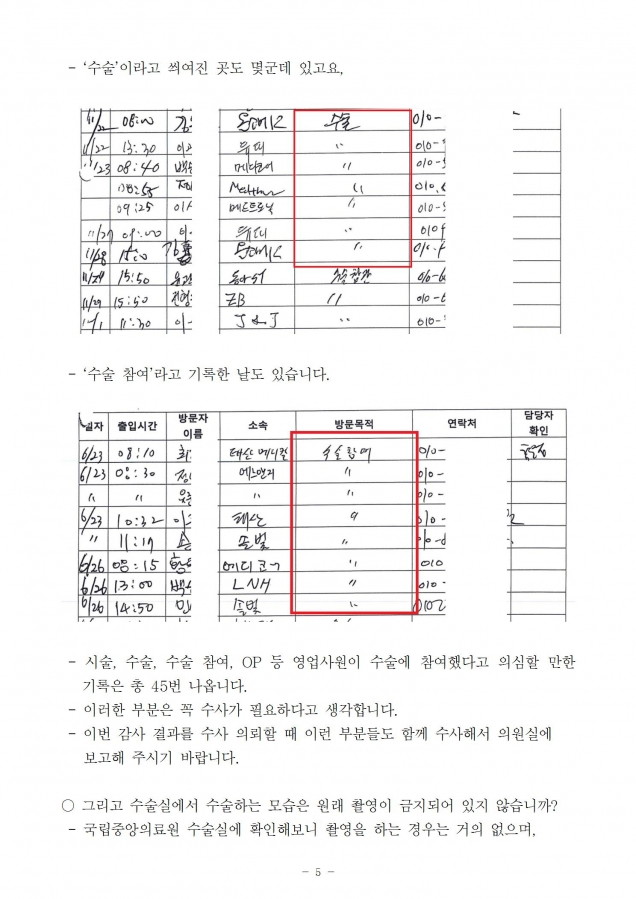 - ‘수술’이라고 씌여진 곳도 몇군데 있고요,
11/22 08:00 수술 010-
11/22 13:30 〃 010-
11/23 08:40 메디코어 〃 010-
〃 010-
09:25 메드트로닉 〃 010-
〃 010-
〃 010-
15:50 010-
11/29 15:50 ZB 〃 010-
11:30 J&J 〃 010-
- ‘수술 참여’라고 기록한 날도 있습니다.
일자 출입시간 방문자 이름 소속 방문목적 연락처 담당자 확인
6/23 08:10 태산 메디컬 수술참여 010-
6/23 08:30 〃 010-
〃 〃 〃 〃 010-
6/23 10:32 태산 〃 010-
〃 11:17 솔빛 〃 010-
6/26 08:15 〃 010
6/26 13:00 LNH 〃 010-
6/26 14:50 솔빛 〃 010
- 시술, 수술, 수술 참여, OP 등 영업사원이 수술에 참여했다고 의심할 만한
기록은 총 45번 나옵니다.
- 이러한 부분은 꼭 수사가 필요하다고 생각합니다.
- 이번 감사 결과를 수사 의뢰할 때 이런 부분들도 함께 수사해서 의원실에
보고해 주시기 바랍니다.
○ 그리고 수술실에서 수술하는 모습은 원래 촬영이 금지되어 있지 않습니까?
- 국립중앙의료원 수술실에 확인해보니 촬영을 하는 경우는 거의 없으며,
- 5 -